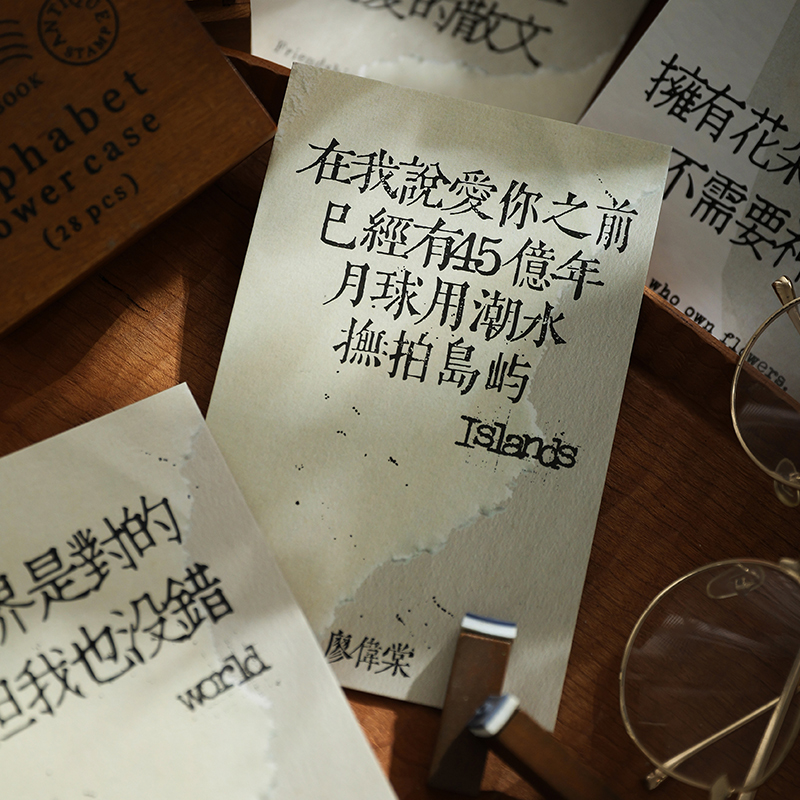 ANTIQUE
STAMP
BOOK
lphabet
ower case
(28 pcs)
的散文
Friendship
擁有花朵
不需要
who own flowers.
在我說愛你之前
已經有45億年
月球用潮水
撫拍島屿
Islands
廖偉棠
界是對的
但我也没錯
world